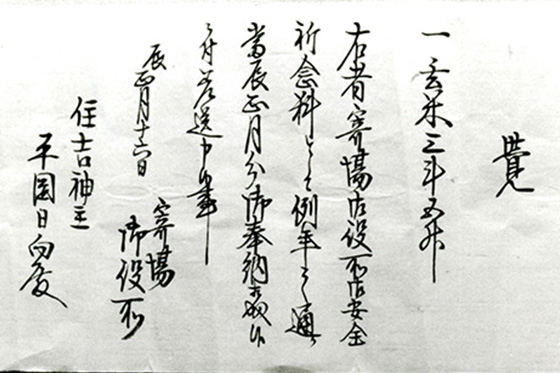 覺
一 玄米三斗五升
右者寄場御役所御安全
祈念料として例年之通
當辰正月分御奉納被成下
之付差送申候事
辰正月十六日
寄場
御役所
住吉神主
平岡日向殿